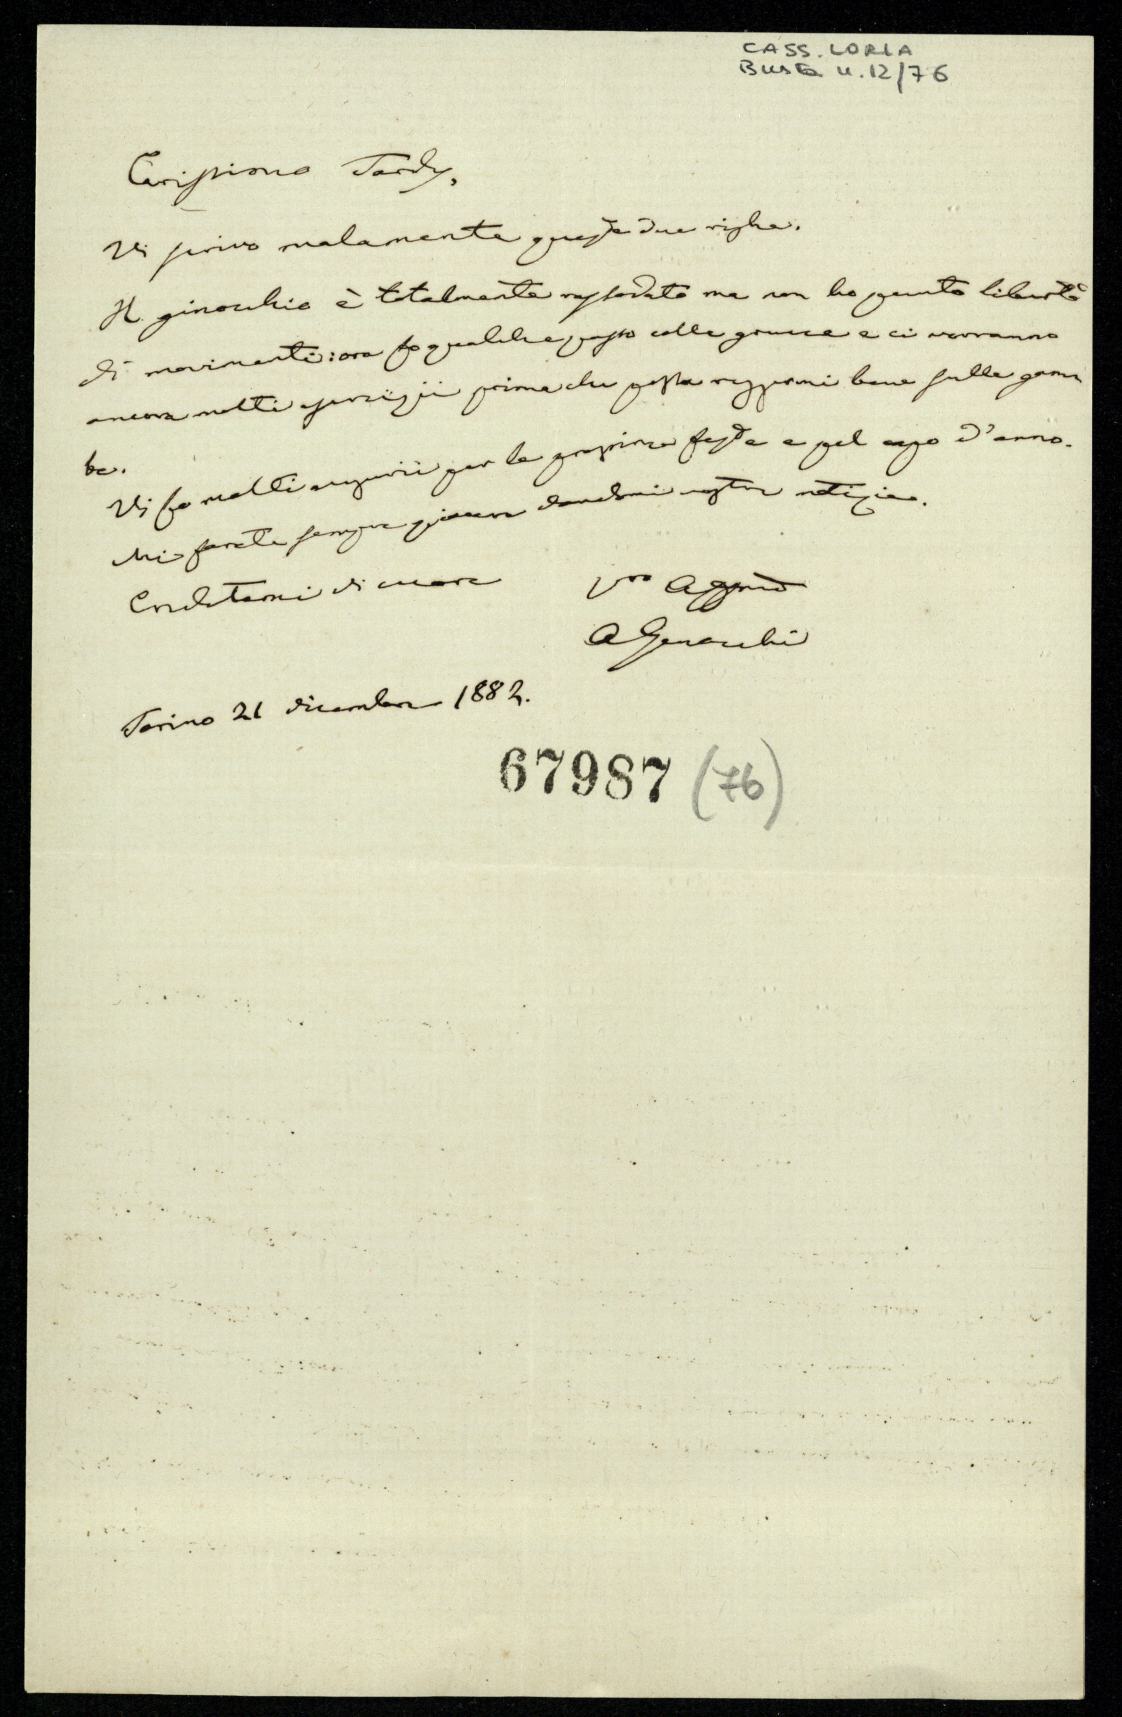 CASS. LORIA
Busta n. 12/76
Carissimo Tardy,
Vi scrivo malamente queste due righe.
Il ginocchio è totalmente rassodato ma non ho punto libertà
di movimenti: ora fo qualche passo colle grucce e ci vorranno
ancora molti esercizii prima che possa reggermi bene sulle gam
be.
Vi fo molti augurii per le prossime feste e pel capo d'anno.
Mi farete sempre piacere dandomi vostre notizie.
Credetemi di cuore
Vro Affmo
A Genocchi
Torino 21 dicembre 1882.
67987 (76)